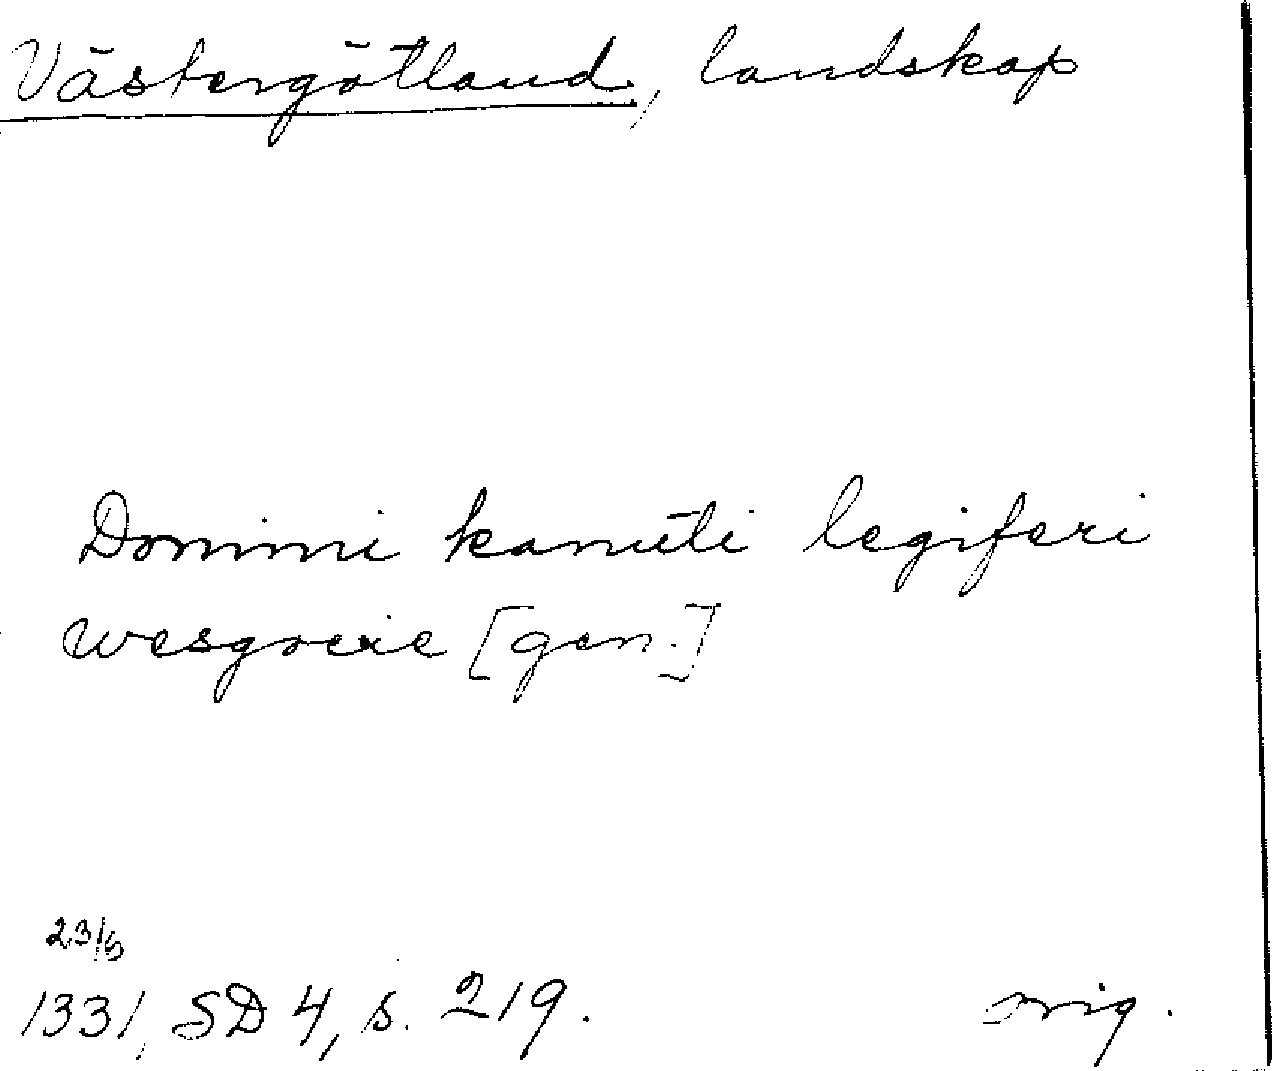 Västergötland, landskap
Domini kanuti legiferi
wesgocie [gen.]
23/5
1331, SD 4, s. 219. orig.